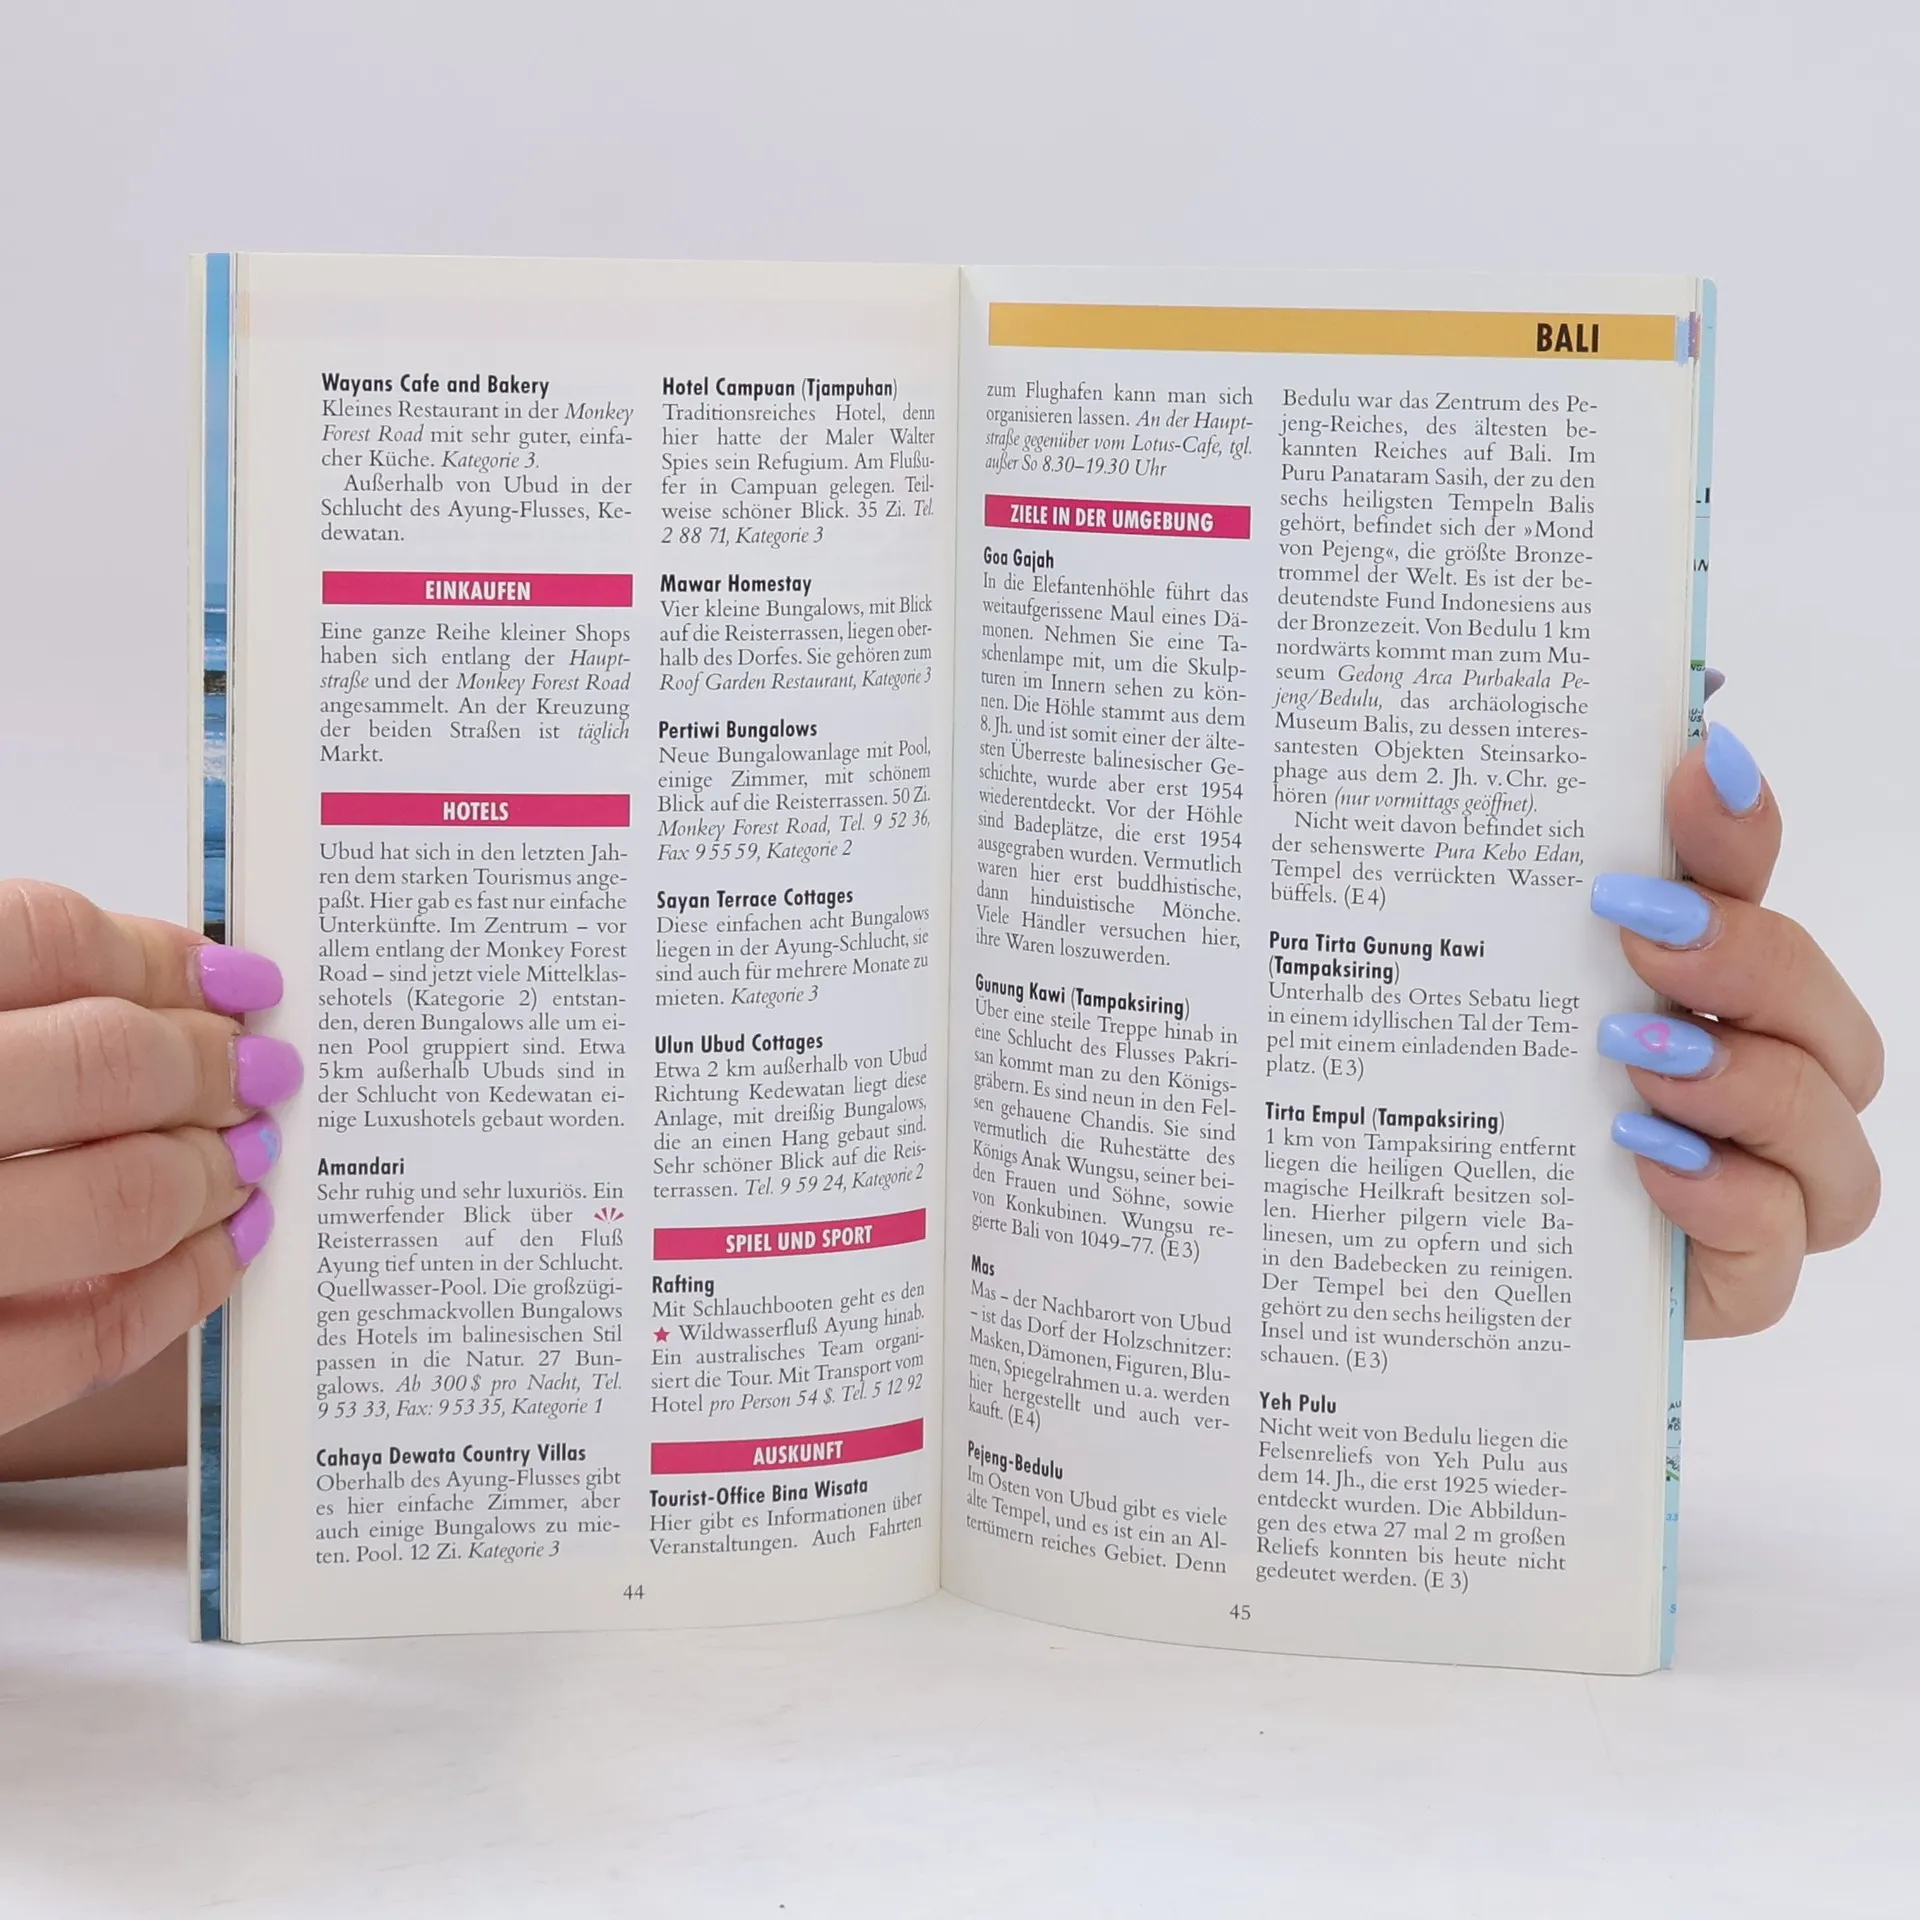 Wayans Cafe and Bakery
Kleines Restaurant in der Monkey
Forest Road mit sehr guter, einfa-
cher Küche. Kategorie 3.
Außerhalb von Ubud in der
Schlucht des Ayung-Flusses, Ke-
dewatan.
EINKAUFEN
Eine ganze Reihe kleiner Shops
haben sich entlang der Haupt-
straße und der Monkey Forest Road
angesammelt. An der Kreuzung
der beiden Straßen ist täglich
Markt.
HOTELS
Ubud hat sich in den letzten Jah-
ren dem starken Tourismus ange-
paßt. Hier gab es fast nur einfache
Unterkünfte. Im Zentrum – vor
allem entlang der Monkey Forest
Road – sind jetzt viele Mittelklas-
sehotels (Kategorie 2) entstan-
den, deren Bungalows alle um ei-
nen Pool gruppiert sind. Etwa
5 km außerhalb Ubuds sind in
der Schlucht von Kedewatan ei-
nige Luxushotels gebaut worden.
Amandari
Sehr ruhig und sehr luxuriös. Ein
umwerfender Blick über
Reisterrassen auf den Fluß
Ayung tief unten in der Schlucht.
Quellwasser-Pool. Die großzügi-
gen geschmackvollen Bungalows
des Hotels im balinesischen Stil
passen in die Natur. 27 Bun-
galows. Ab 300 $ pro Nacht, Tel.
9 53 33, Fax: 9 53 35, Kategorie 1
Cahaya Dewata Country Villas
Oberhalb des Ayung-Flusses gibt
es hier einfache Zimmer, aber
auch einige Bungalows zu mie-
ten. Pool. 12 Zi. Kategorie 3
Hotel Campuan (Tjampuhan)
Traditionsreiches Hotel, denn
hier hatte der Maler Walter
Spies sein Refugium. Am Flußu-
fer in Campuan gelegen. Teil-
weise schöner Blick. 35 Zi. Tel.
2 88 71, Kategorie 3
Mawar Homestay
Vier kleine Bungalows, mit Blick
auf die Reisterrassen, liegen ober-
halb des Dorfes. Sie gehören zum
Roof Garden Restaurant, Kategorie 3
Pertiwi Bungalows
Neue Bungalowanlage mit Pool,
einige Zimmer, mit schönem
Blick auf die Reisterrassen. 50 Zi.
Monkey Forest Road, Tel. 9 52 36,
Fax 9 55 59, Kategorie 2
Sayan Terrace Cottages
Diese einfachen acht Bungalows
liegen in der Ayung-Schlucht, sie
sind auch für mehrere Monate zu
mieten. Kategorie 3
Ulun Ubud Cottages
Etwa 2 km außerhalb von Ubud
Richtung Kedewatan liegt diese
Anlage, mit dreißig Bungalows,
die an einen Hang gebaut sind.
Sehr schöner Blick auf die Reis-
terrassen. Tel. 9 59 24, Kategorie 2
SPIEL UND SPORT
Rafting
Mit Schlauchbooten geht es den
★ Wildwasserfluß Ayung hinab.
Ein australisches Team organi-
siert die Tour. Mit Transport vom
Hotel pro Person 54 $. Tel. 5 12 92
AUSKUNFT
Tourist-Office Bina Wisata
Hier gibt es Informationen über
Veranstaltungen. Auch Fahrten
44
BALI
zum Flughafen kann man sich
organisieren lassen. An der Haupt-
straße gegenüber vom Lotus-Cafe, tgl.
außer So 8.30–19.30 Uhr
ZIELE IN DER UMGEBUNG
Goa Gajah
In die Elefantenhöhle führt das
weitaufgerissene Maul eines Dä-
monen. Nehmen Sie eine Ta-
schenlampe mit, um die Skulp-
turen im Innern sehen zu kön-
nen. Die Höhle stammt aus dem
8. Jh. und ist somit einer der älte-
sten Überreste balinesischer Ge-
schichte, wurde aber erst 1954
wiederentdeckt. Vor der Höhle
sind Badeplätze, die erst 1954
ausgegraben wurden. Vermutlich
waren hier erst buddhistische,
dann hinduistische Mönche.
Viele Händler versuchen hier,
ihre Waren loszuwerden.
Gunung Kawi (Tampaksiring)
Über eine steile Treppe hinab in
eine Schlucht des Flusses Pakri-
san kommt man zu den Königs-
gräbern. Es sind neun in den Fel-
sen gehauene Chandis. Sie sind
vermutlich die Ruhestätte des
Königs Anak Wungsu, seiner bei-
den Frauen und Söhne, sowie
von Konkubinen. Wungsu re-
gierte Bali von 1049–77. (E 3)
Mas
Mas – der Nachbarort von Ubud
– ist das Dorf der Holzschnitzer:
Masken, Dämonen, Figuren, Blu-
men, Spiegelrahmen u. a. werden
hier hergestellt und auch ver-
kauft. (E 4)
Pejeng-Bedulu
Im Osten von Ubud gibt es viele
alte Tempel, und es ist ein an Al-
tertümern reiches Gebiet. Denn
Bedulu war das Zentrum des Pe-
jeng-Reiches, des ältesten be-
kannten Reiches auf Bali. Im
Puru Panataram Sasih, der zu den
sechs heiligsten Tempeln Balis
gehört, befindet sich der »Mond
von Pejeng«, die größte Bronze-
trommel der Welt. Es ist der be-
deutendste Fund Indonesiens aus
der Bronzezeit. Von Bedulu 1 km
nordwärts kommt man zum Mu-
seum Gedong Arca Purbakala Pe-
jeng/Bedulu, das archäologische
Museum Balis, zu dessen interes-
santesten Objekten Steinsarko-
phage aus dem 2. Jh. v. Chr. ge-
hören (nur vormittags geöffnet).
Nicht weit davon befindet sich
der sehenswerte Pura Kebo Edan,
Tempel des verrückten Wasser-
büffels. (E 4)
Pura Tirta Gunung Kawi
(Tampaksiring)
Unterhalb des Ortes Sebatu liegt
in einem idyllischen Tal der Tem-
pel mit einem einladenden Bade-
platz. (E 3)
Tirta Empul (Tampaksiring)
1 km von Tampaksiring entfernt
liegen die heiligen Quellen, die
magische Heilkraft besitzen sol-
len. Hierher pilgern viele Ba-
linesen, um zu opfern und sich
in den Badebecken zu reinigen.
Der Tempel bei den Quellen
gehört zu den sechs heiligsten der
Insel und ist wunderschön anzu-
schauen. (E 3)
Yeh Pulu
Nicht weit von Bedulu liegen die
Felsenreliefs von Yeh Pulu aus
dem 14. Jh., die erst 1925 wieder-
entdeckt wurden. Die Abbildun-
gen des etwa 27 mal 2 m großen
Reliefs konnten bis heute nicht
gedeutet werden. (E 3)
45